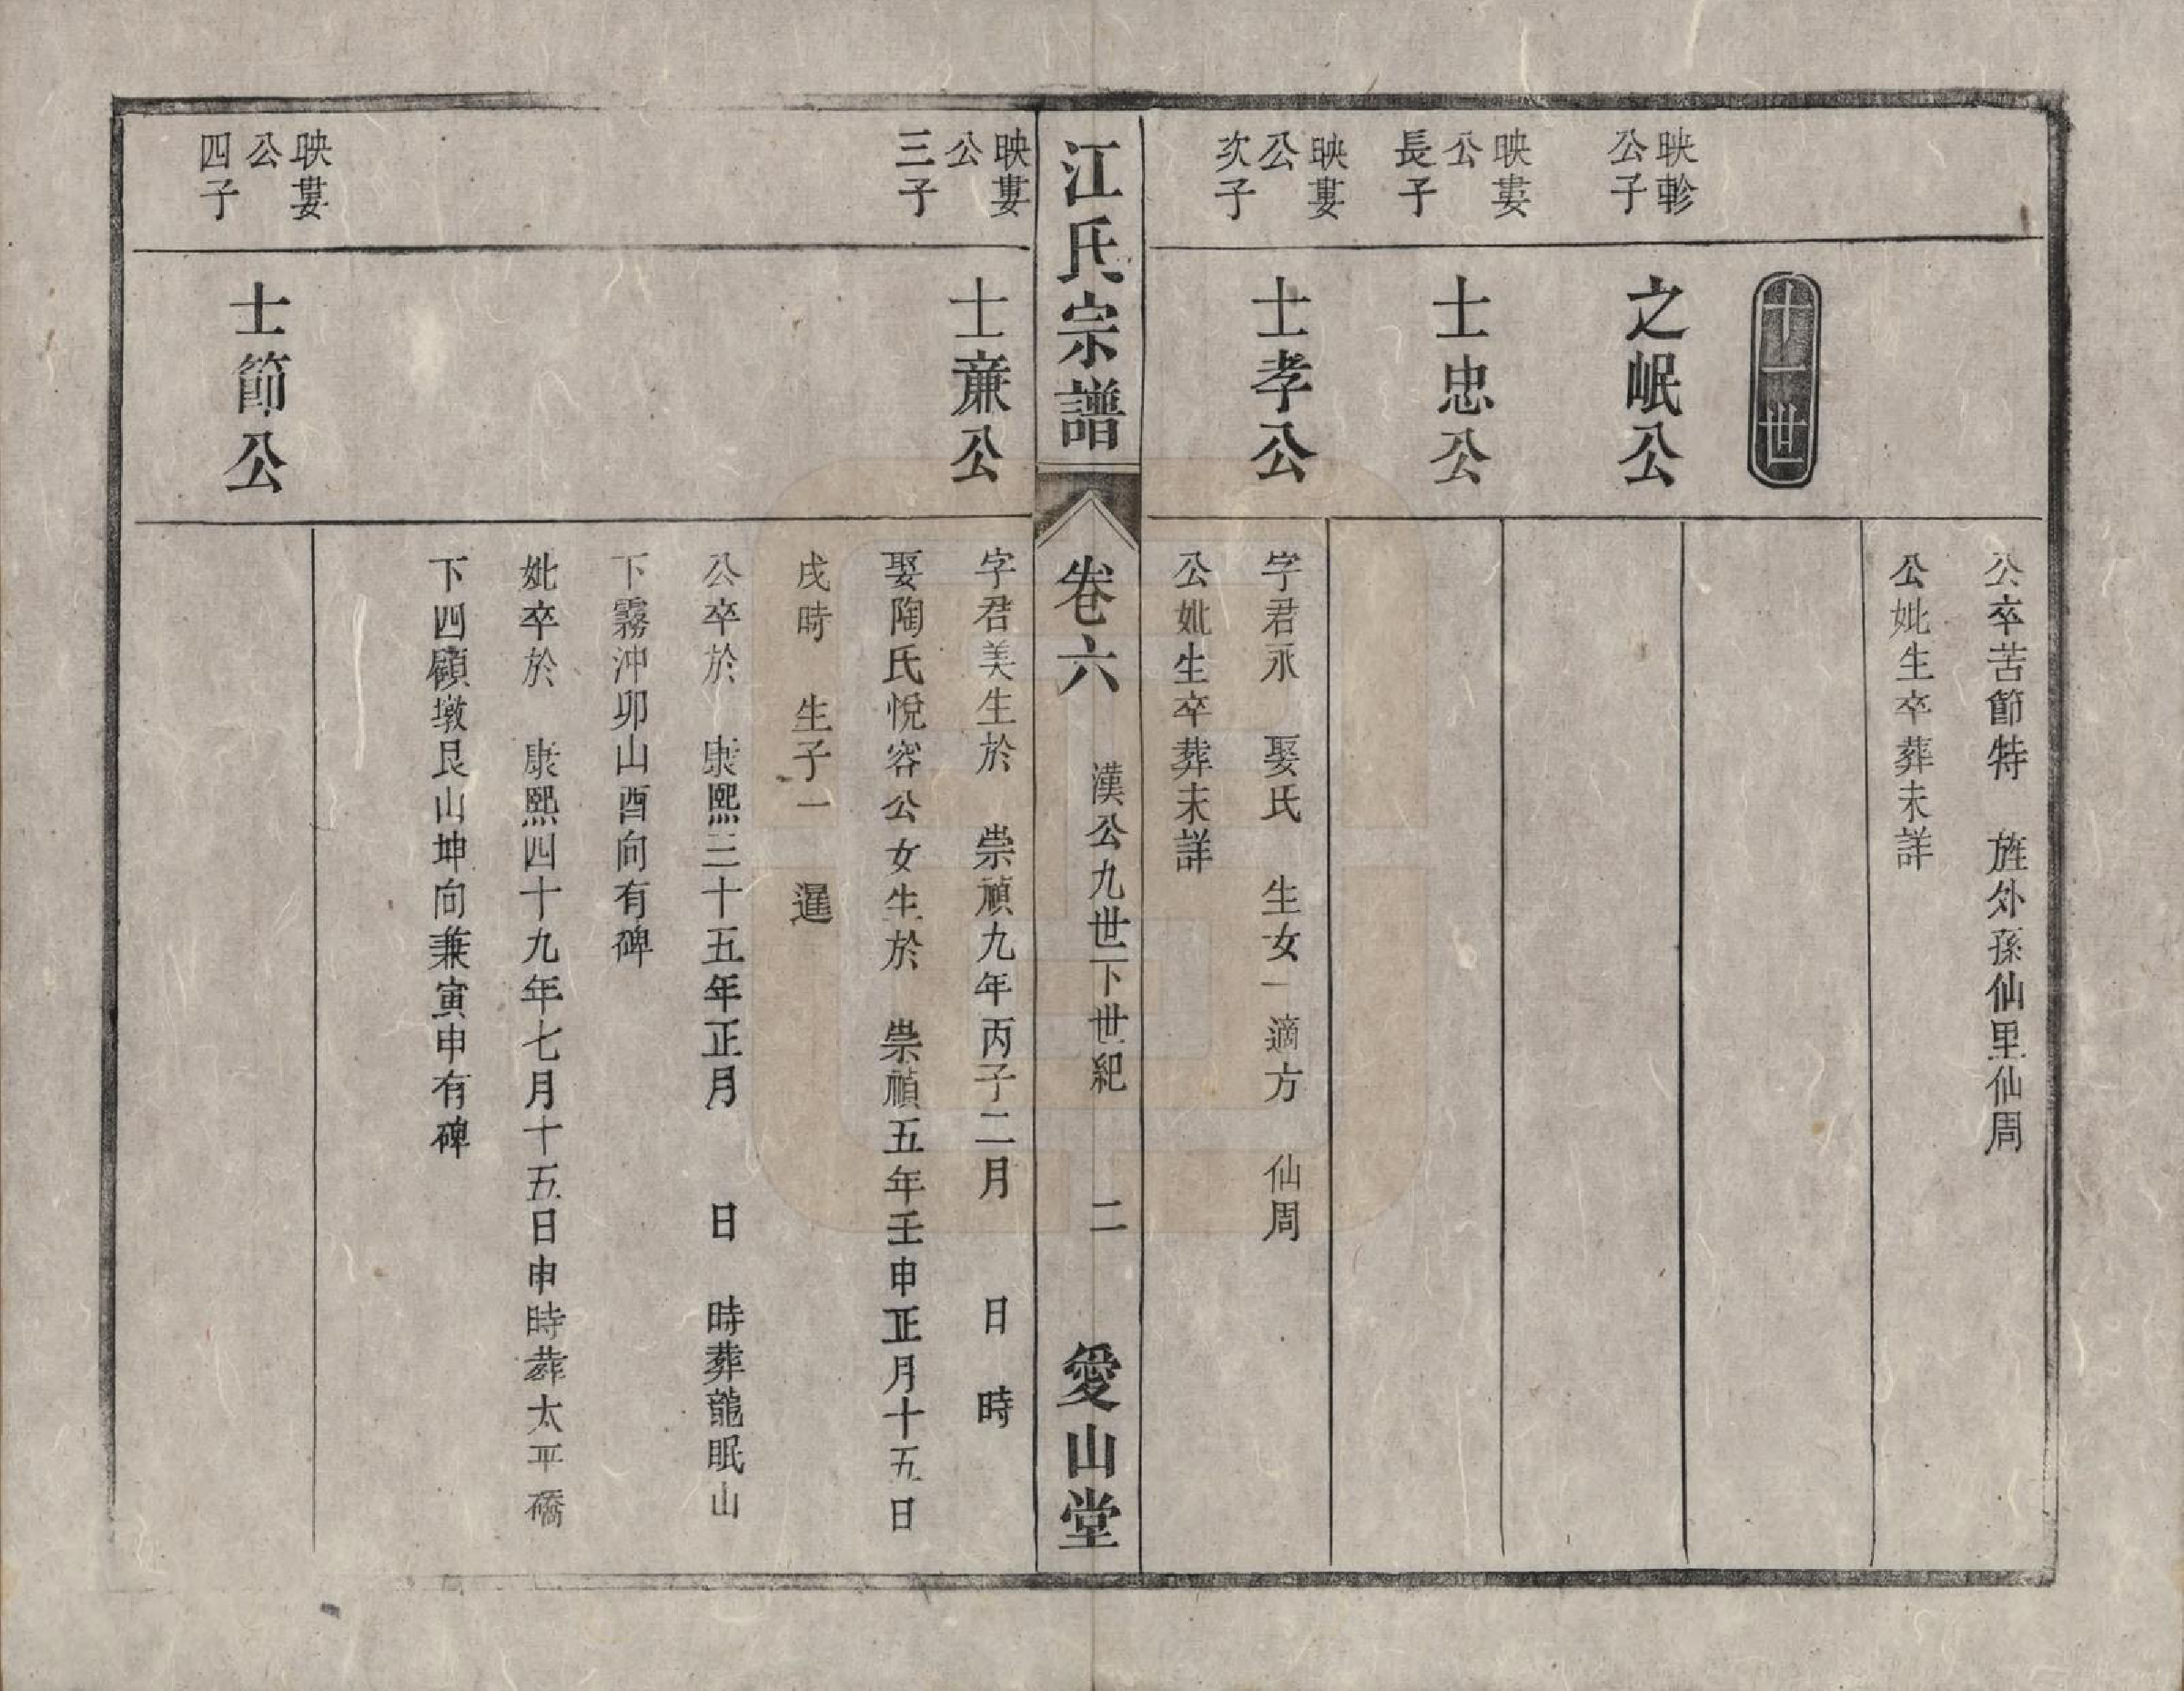 公卒苦節特　旌外孫仙里仙周
公妣生卒葬未詳
十一世
映軫
公子
之岷公
映婁
公
長子
士忠公
映婁
公
次子
士孝公
字君永　娶氏　生女一適方　仙周
公妣生卒葬未詳
江氏宗譜
卷六
漢公九世下世紀
二
愛山堂
映婁
公
三子
士亷公
字君美生於　崇禎九年丙子二月　日　時
娶陶氏悅容公女生於　崇禎五年壬申正月十五日
戌時　生子一　暹
公卒於　康熙三十五年正月　日　時葬龍眠山
下霧沖卯山酉向有碑
妣卒於　康熙四十九年七月十五日申時葬太平橋
下四顧墩艮山坤向兼寅申有碑
映婁
公
四子
士節公